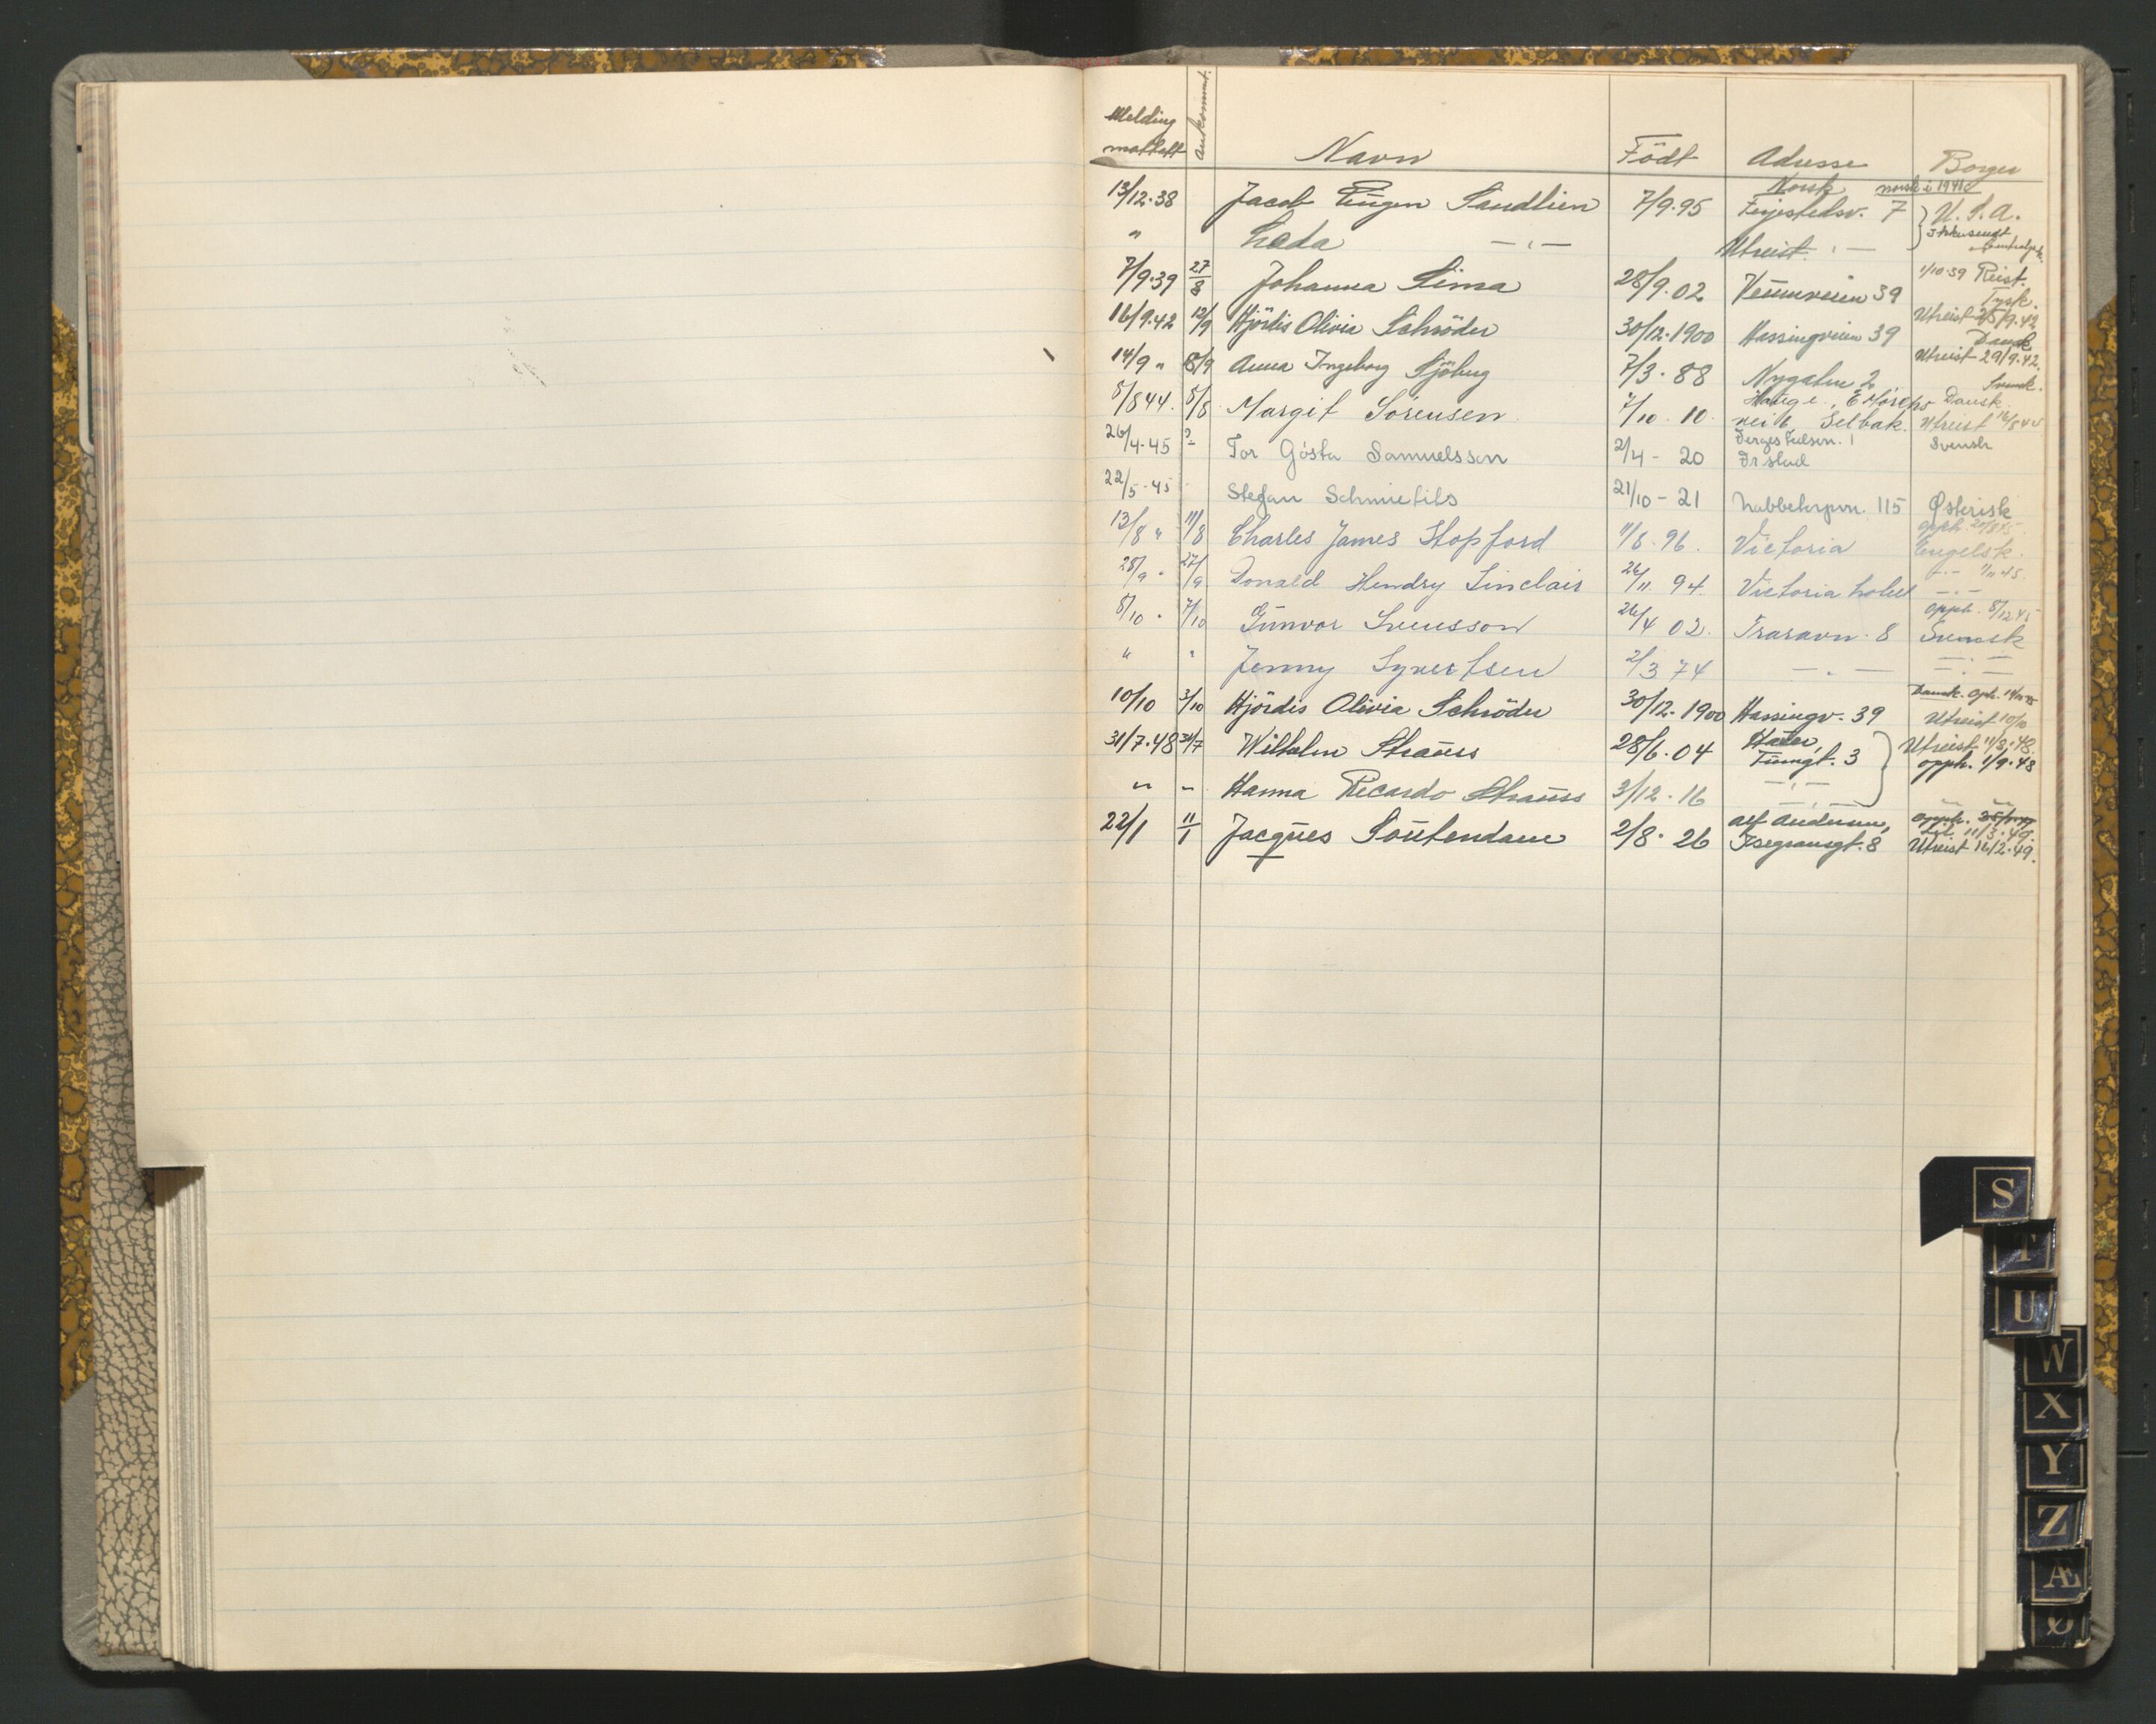 Melding mottatt Ankommet. Navn Födt Adresse Borger
13/12.38 Jacob Eugen Sandlien 7/9.95 Norsk Ferjestedsv. 7 norsk i 1941 U.S.A.
" Leda —"— Utreist. —"—
7/9.39 27/8 Johanna Sima 28/9.02 Veumveien 39 1/10.39 Reist. Tysk.
16/9.42 12/9 Hjördis Olivia Schröder 30/12.1900 Hassingveien 39 Utreist 25/9.42 Dansk
14/9 " 8/9 Anna Ingeborg Sjöberg 7/3.88 Nygaten 2 Utreist 29/9.42. Svensk.
8/8 44. 5/8 Margit Sörensen 7/10.10. vei 6 Selbak. Dansk. Utreist
26/4-45 ? Tor Gösta Samuelsson 2/4-20 Fr.stad Svensk
22/5-45 Stefan 21/10-21 115 Østerisk
13/8 " 11/8 Charles James Stopford 11/8.96. Victoria Engelsk.
28/9 " 27/9 Donald Hendry Sinclair 26/11 94. Victoria hotel —"—
8/10 " 7/10 Gunvor Svensson 26/4 02. Traravn. 8 opph. 8/12 45 Svensk
" " Jenny Syvertsen 2/3 74 —"— —"—
10/10 3/10 Hjördis Olivia Schröder 30/12.1900 Hassingv. 39 Dansk. Utreist 10/10
31/7.48 31/7 Wilhelm Strauss 28/6.04 3 Utreist 11/8.48. opph. 1/9.48
" " Hanna Ricardo Strauss 3/12.16 —"—
22/1 11/1 Jacques Soutendam 2/8.26 Alf Andersen, Isegransgt. 8 opph. til 11/3.49. Utreist 16/2.49.
S
T
U
W
X
Y
Z
Æ
Ø